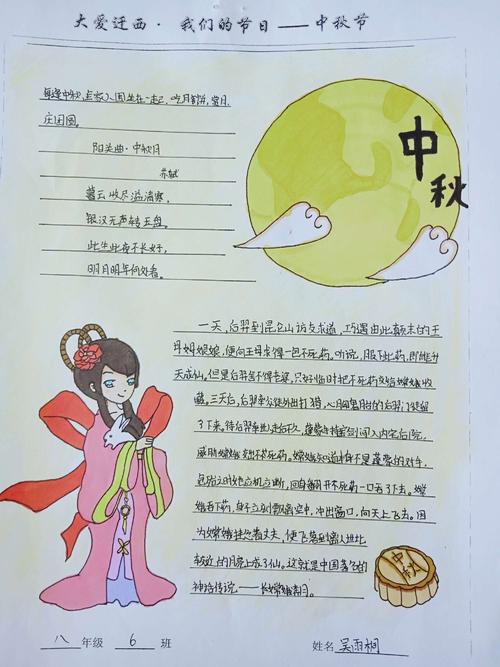 大爱迁西·我们的节日——中秋节
每逢中秋,全家人围坐在一起,吃月饼,赏月,
庄团圆。
中
秋
阳关曲·中秋月
苏轼
暮云收尽溢清寒,
银汉无声转玉盘。
此生此夜不长好,
明月明年何处看。
一天,后羿到昆仑山访友求道,巧遇由此颠末的王
母娘娘,便向王母求得一包不死药。听说,服下此药,即能升
天成仙。但是后羿舍不得老婆,只好临时把不死药交给嫦娥收
藏。三天后,后羿率众徒外出打猎,心
了下来。待后羿率出走后不久,蓬蒙手持宝剑闯入内宅后院,
威胁嫦娥交出不死药。嫦娥知道本身不是蓬蒙的对手,
立时当机立断,回身翻开不死药一口吞了下去。嫦
娥吞下药,身子立刻飘离空中,冲出窗口,向天上飞去。因
为嫦娥挂念着丈夫,便飞落到离人世比
较近的月亮上成了仙。这就是中国著名的
神话传说——长嫦娥奔月。
中秋
八年级 6 班 姓名 吴雨桐